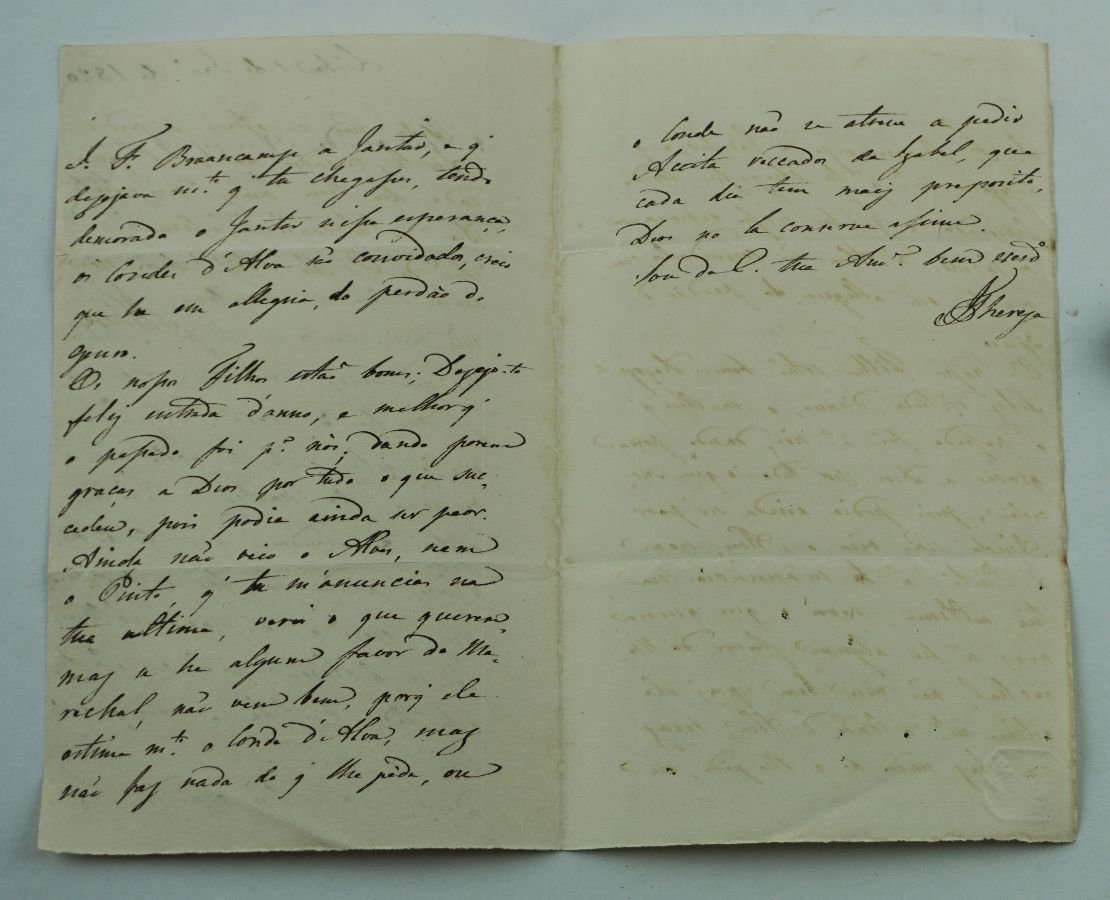 J. F. Braancamp a Jantar, e q̃
dezejava m.to q̃ tu chegasses, tendo
demorado o Jantar nessa esperança,
os Condes d'Alva são convidados, creio
que he em allegria, do perdão do
genro.
Os nossos Filhos estão bons; Dezejo-te
feliz entrada d'anno, e melhor q̃
o passado foi p.a nós, dando porem
graças a Dios por tudo o que suc-
cedeu, pois podia ainda ser peor.
Ainda não veio o Alves, nem
o Pinto, q̃ tu m'anuncias na
tua ultima, verei o que querem
mas se he algum favor do Ma-
rechal, não vem bem, porq̃ ele
estima m.to o Conde d'Alva, mas
não faz nada do q̃ lhe péde, ou
o Conde não se atreve a pedir
Aceita reccados da Izabel, que
cada dia tem mais preposito,
Dios no la conserve assim.
Sou do C. tua Am.a bem
Thereza